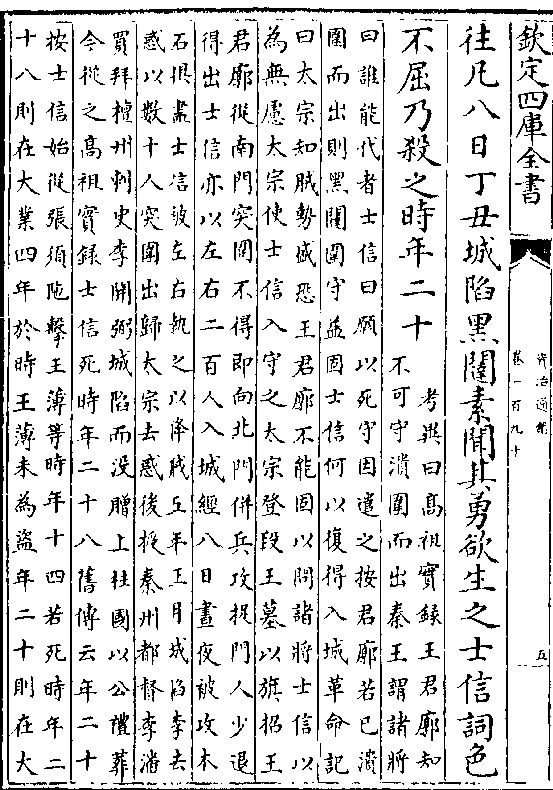 欽定四庫全書
資治通鑑
卷一百九十
五
往凡八日丁丑城陷黑闥素聞其勇欲生之士信詞色
不屈乃殺之時年二十
考異曰髙祖實録王君廓知
不可守潰圍而出秦王謂諸將
曰誰能代者士信曰願以死守因遣之按君廓若已潰
圍而出則黑闥圍守益固士信何以復得入城革命記
曰太宗知賊勢盛恐王君廓不能固以問諸將士信以
為無慮太宗使士信入守之太宗登段王墓以旗招王
君廓從南門突圍不得即向北門併兵攻捉門人少退
得出士信亦以左右二百人入城經八日晝夜被攻木
石俱盡士信被左右執之以降賊五年正月城陷李去
惑以數十人突圍出歸太宗去惑後授秦州都督李潘
買拜檀州刺史李開弼城陷而没贈上柱國以公禮葬
今從之髙祖實録士信死時年二十八舊傳云年二十
按士信始從張須陁擊王薄等時年十四若死時年二
十八則在大業四年於時王薄未為盜年二十則在大